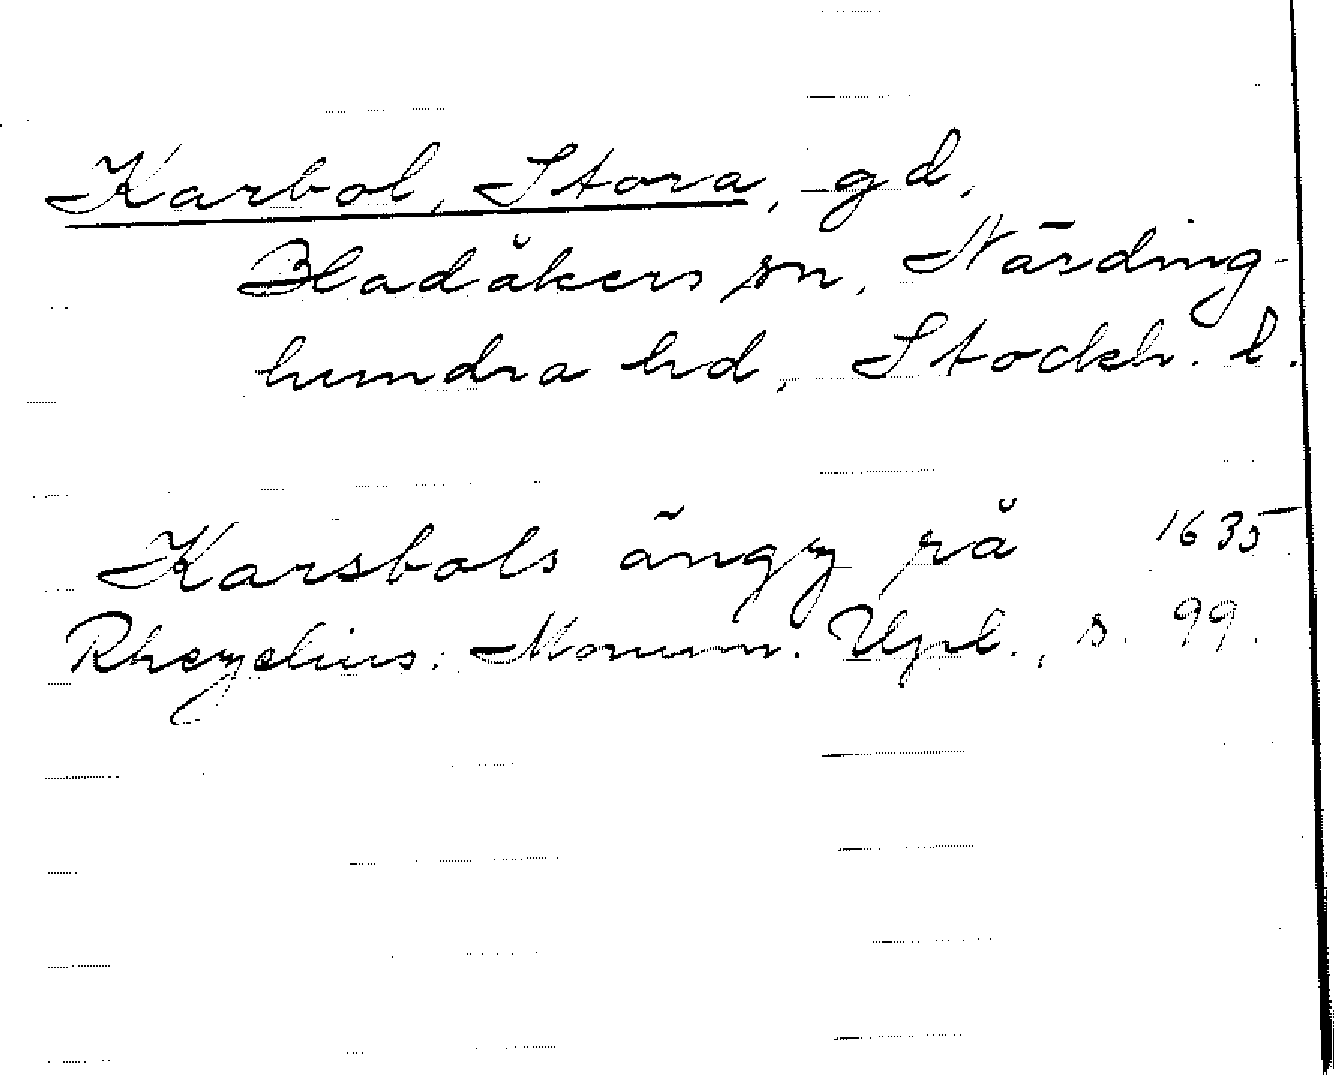 Karbol, Stora, gd,
Bladåkers sn, Närding-
hundra hd, Stockh. l.
Karsbols ängz rå 1635
Rhezelius: Monum. Upl., s. 99.